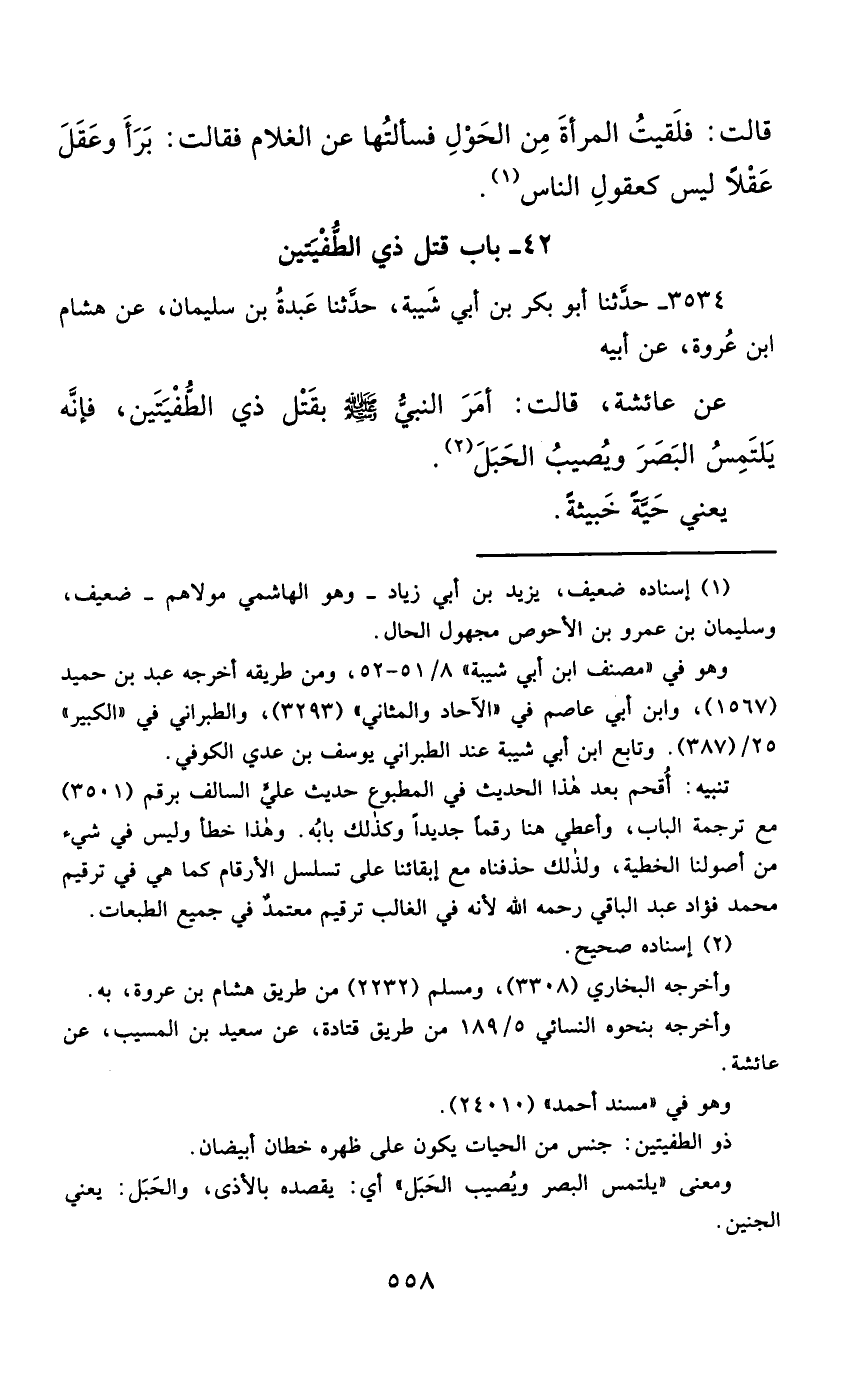 قالت: فلَقيتُ المرأةَ مِن الحَوْلِ فسألتُها عن الغلام فقالت: بَرَأَ وعَقَلَ
عَقْلاً ليس كعقولِ الناس(١).
٤٢ـ باب قتل ذي الطُّفْيَتين
٣٥٣٤ـ حدَّثنا أبو بكر بن أبي شَيبة، حدَّثنا عَبدةُ بن سليمان، عن هشام
ابن عُروة، عن أبيه
عن عائشة، قالت: أمَرَ النبيُّ ﷺ بقَتْل ذي الطُّفْيَتَين، فإنَّه
يَلتَمِسُ البَصَرَ ويُصيبُ الحَبَلَ(٢).
يعني حَيَّةً خَبيثةً.
(١) إسناده ضعيف، يزيد بن أبي زياد ـ وهو الهاشمي مولاهم ـ ضعيف،
وسليمان بن عمرو بن الأحوص مجهول الحال.
وهو في «مصنف ابن أبي شيبة» ٨/ ٥١-٥٢، ومن طريقه أخرجه عبد بن حميد
(١٥٦٧)، وابن أبي عاصم في «الآحاد والمثاني» (٣٢٩٣)، والطبراني في «الكبير»
٢٥/ (٣٨٧). وتابع ابن أبي شيبة عند الطبراني يوسف بن عدي الكوفي.
تنبيه: أُقحم بعد هٰذا الحديث في المطبوع حديث عليٍّ السالف برقم (٣٥٠١)
مع ترجمة الباب، وأعطي هنا رقماً جديداً وكذٰلك بابُه. وهٰذا خطأ وليس في شيء
من أصولنا الخطية، ولذٰلك حذفناه مع إبقائنا على تسلسل الأرقام كما هي في ترقيم
محمد فؤاد عبد الباقي رحمه الله لأنه في الغالب ترقيم معتمدٌ في جميع الطبعات.
(٢) إسناده صحيح.
وأخرجه البخاري (٣٣٠٨)، ومسلم (٢٢٣٢) من طريق هشام بن عروة، به.
وأخرجه بنحوه النسائي ٥/ ١٨٩ من طريق قتادة، عن سعيد بن المسيب، عن
عائشة.
وهو في «مسند أحمد» (٢٤٠١٠).
ذو الطفيتين: جنس من الحيات يكون على ظهره خطان أبيضان.
ومعنى «يلتمس البصر ويُصيب الحَبَل» أي: يقصده بالأذى، والحَبَل: يعني
الجنين.
٥٥٨